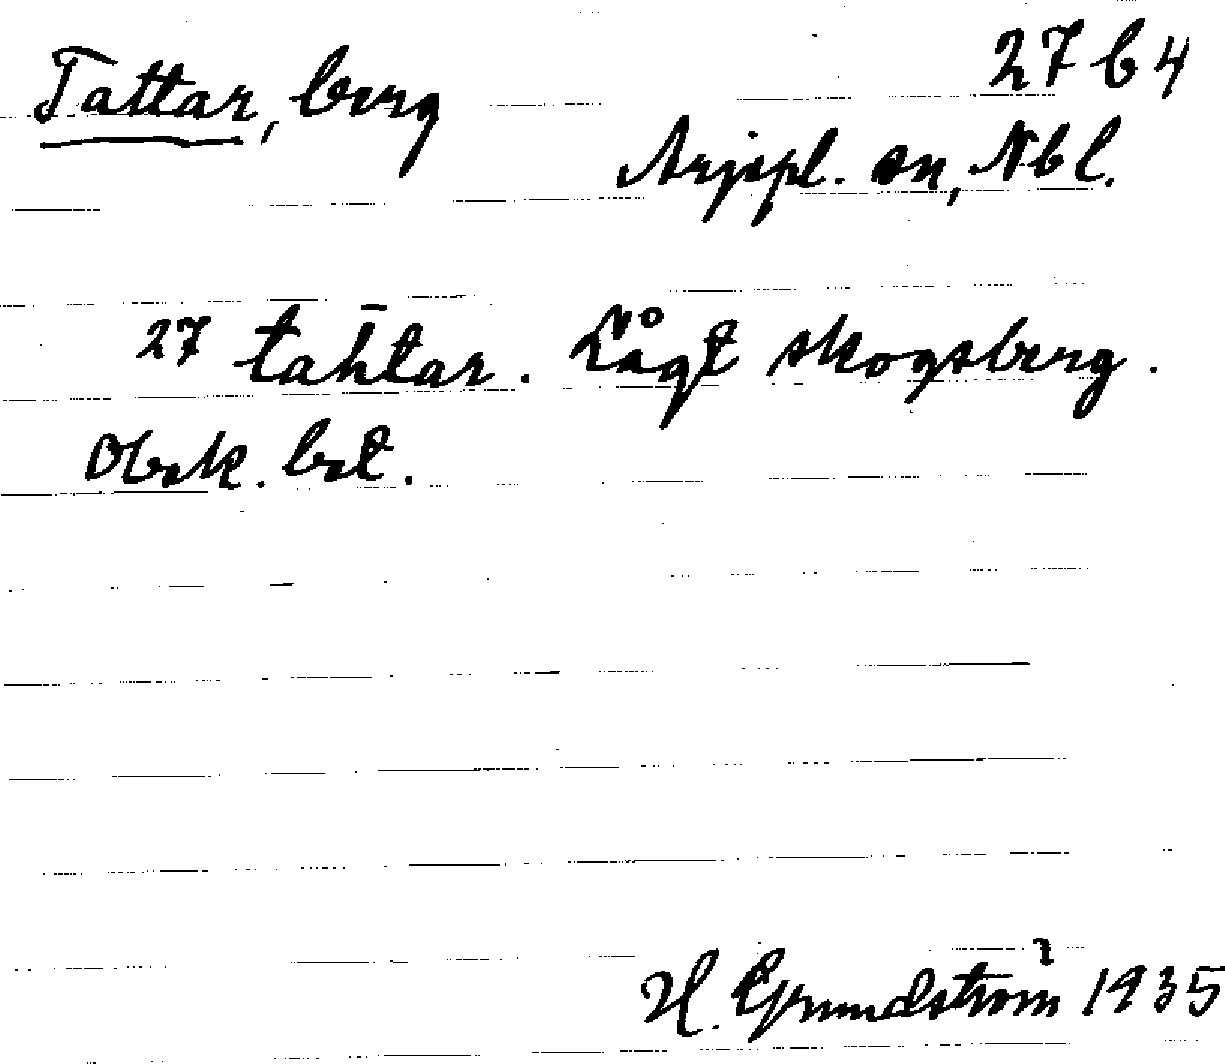 Tattar, berg
27 b 4
Arjepl. sn, Nbl.
27 tah̄tar. Lågt skogsberg.
Obsk. bet.
H. Grundström 1935